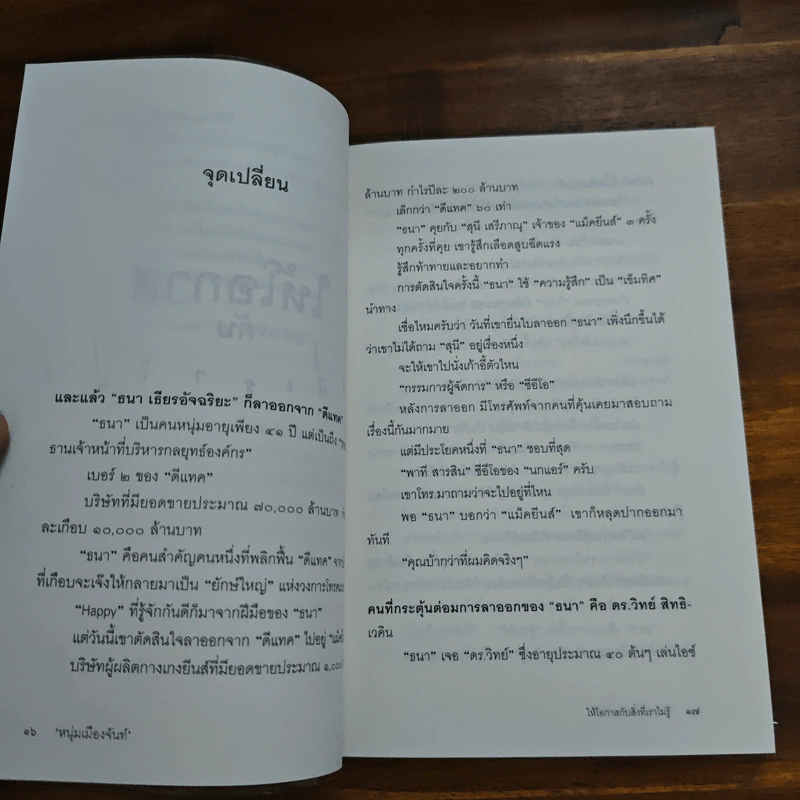 จุดเปลี่ยน
และแล้ว "ธนา เธียรอัจฉริยะ" ก็ลาออกจาก "ดีแทค"
"ธนา" เป็นคนหนุ่มอายุเพียง ๔๑ ปี แต่เป็นถึง
ธานเจ้าหน้าที่บริหารกลยุทธ์องค์กร"
เบอร์ ๒ ของ "ดีแทค"
บริษัทที่มียอดขายประมาณ ๗๐,๐๐๐ ล้านบาท
ละเกือบ ๑๐,๐๐๐ ล้านบาท
"ธนา" คือคนสำคัญคนหนึ่งที่พลิกฟื้น "ดีแทค"
ที่เกือบจะเจ๊งให้กลายมาเป็น "ยักษ์ใหญ่" แห่งวงการ
"Happy" ที่รู้จักกันดีก็มาจากฝีมือของ "ธนา"
แต่วันนี้เขาตัดสินใจลาออกจาก "ดีแทค" ไปอยู่
บริษัทผู้ผลิตกางเกงยีนส์ที่มียอดขายประมาณ ๑,๐๐๐
๑๖ 'หนุ่มเมืองจันท์'
ล้านบาท กำไรปีละ ๒๐๐ ล้านบาท
เล็กกว่า "ดีแทค" ๖๐ เท่า
"ธนา" คุยกับ "สุนี เสรีภาณุ" เจ้าของ "แม็คยีนส์" ๓ ครั้ง
ทุกครั้งที่คุย เขารู้สึกเลือดสูบฉีดแรง
รู้สึกท้าทายและอยากทำ
การตัดสินใจครั้งนี้ "ธนา" ใช้ "ความรู้สึก" เป็น "เข็มทิศ"
นำทาง
เชื่อไหมครับว่า วันที่เขายื่นใบลาออก "ธนา" เพิ่งนึกขึ้นได้
ว่าเขาไม่ได้ถาม "สุนี" อยู่เรื่องหนึ่ง
จะให้เขาไปนั่งเก้าอี้ตัวไหน
"กรรมการผู้จัดการ" หรือ "ซีอีโอ"
หลังการลาออก มีโทรศัพท์จากคนที่คุ้นเคยมาสอบถาม
เรื่องนี้กันมากมาย
แต่มีประโยคหนึ่งที่ "ธนา" ชอบที่สุด
"พาที สารสิน" ซีอีโอของ "นกแอร์" ครับ
เขาโทร.มาถามว่าจะไปอยู่ที่ไหน
พอ "ธนา" บอกว่า "แม็คยีนส์" เขาก็หลุดปากออกมา
ทันที
"คุณบ้ากว่าที่ผมคิดจริงๆ"
คนที่กระตุ้นต่อมการลาออกของ "ธนา" คือ ดร.วิทย์ สิทธิ-
เวคิน
"ธนา" เจอ "ดร.วิทย์" ซึ่งอายุประมาณ ๔๐ ต้นๆ เล่นไอซ์
ให้โอกาสกับสิ่งที่เราไม่รู้ ๑๗